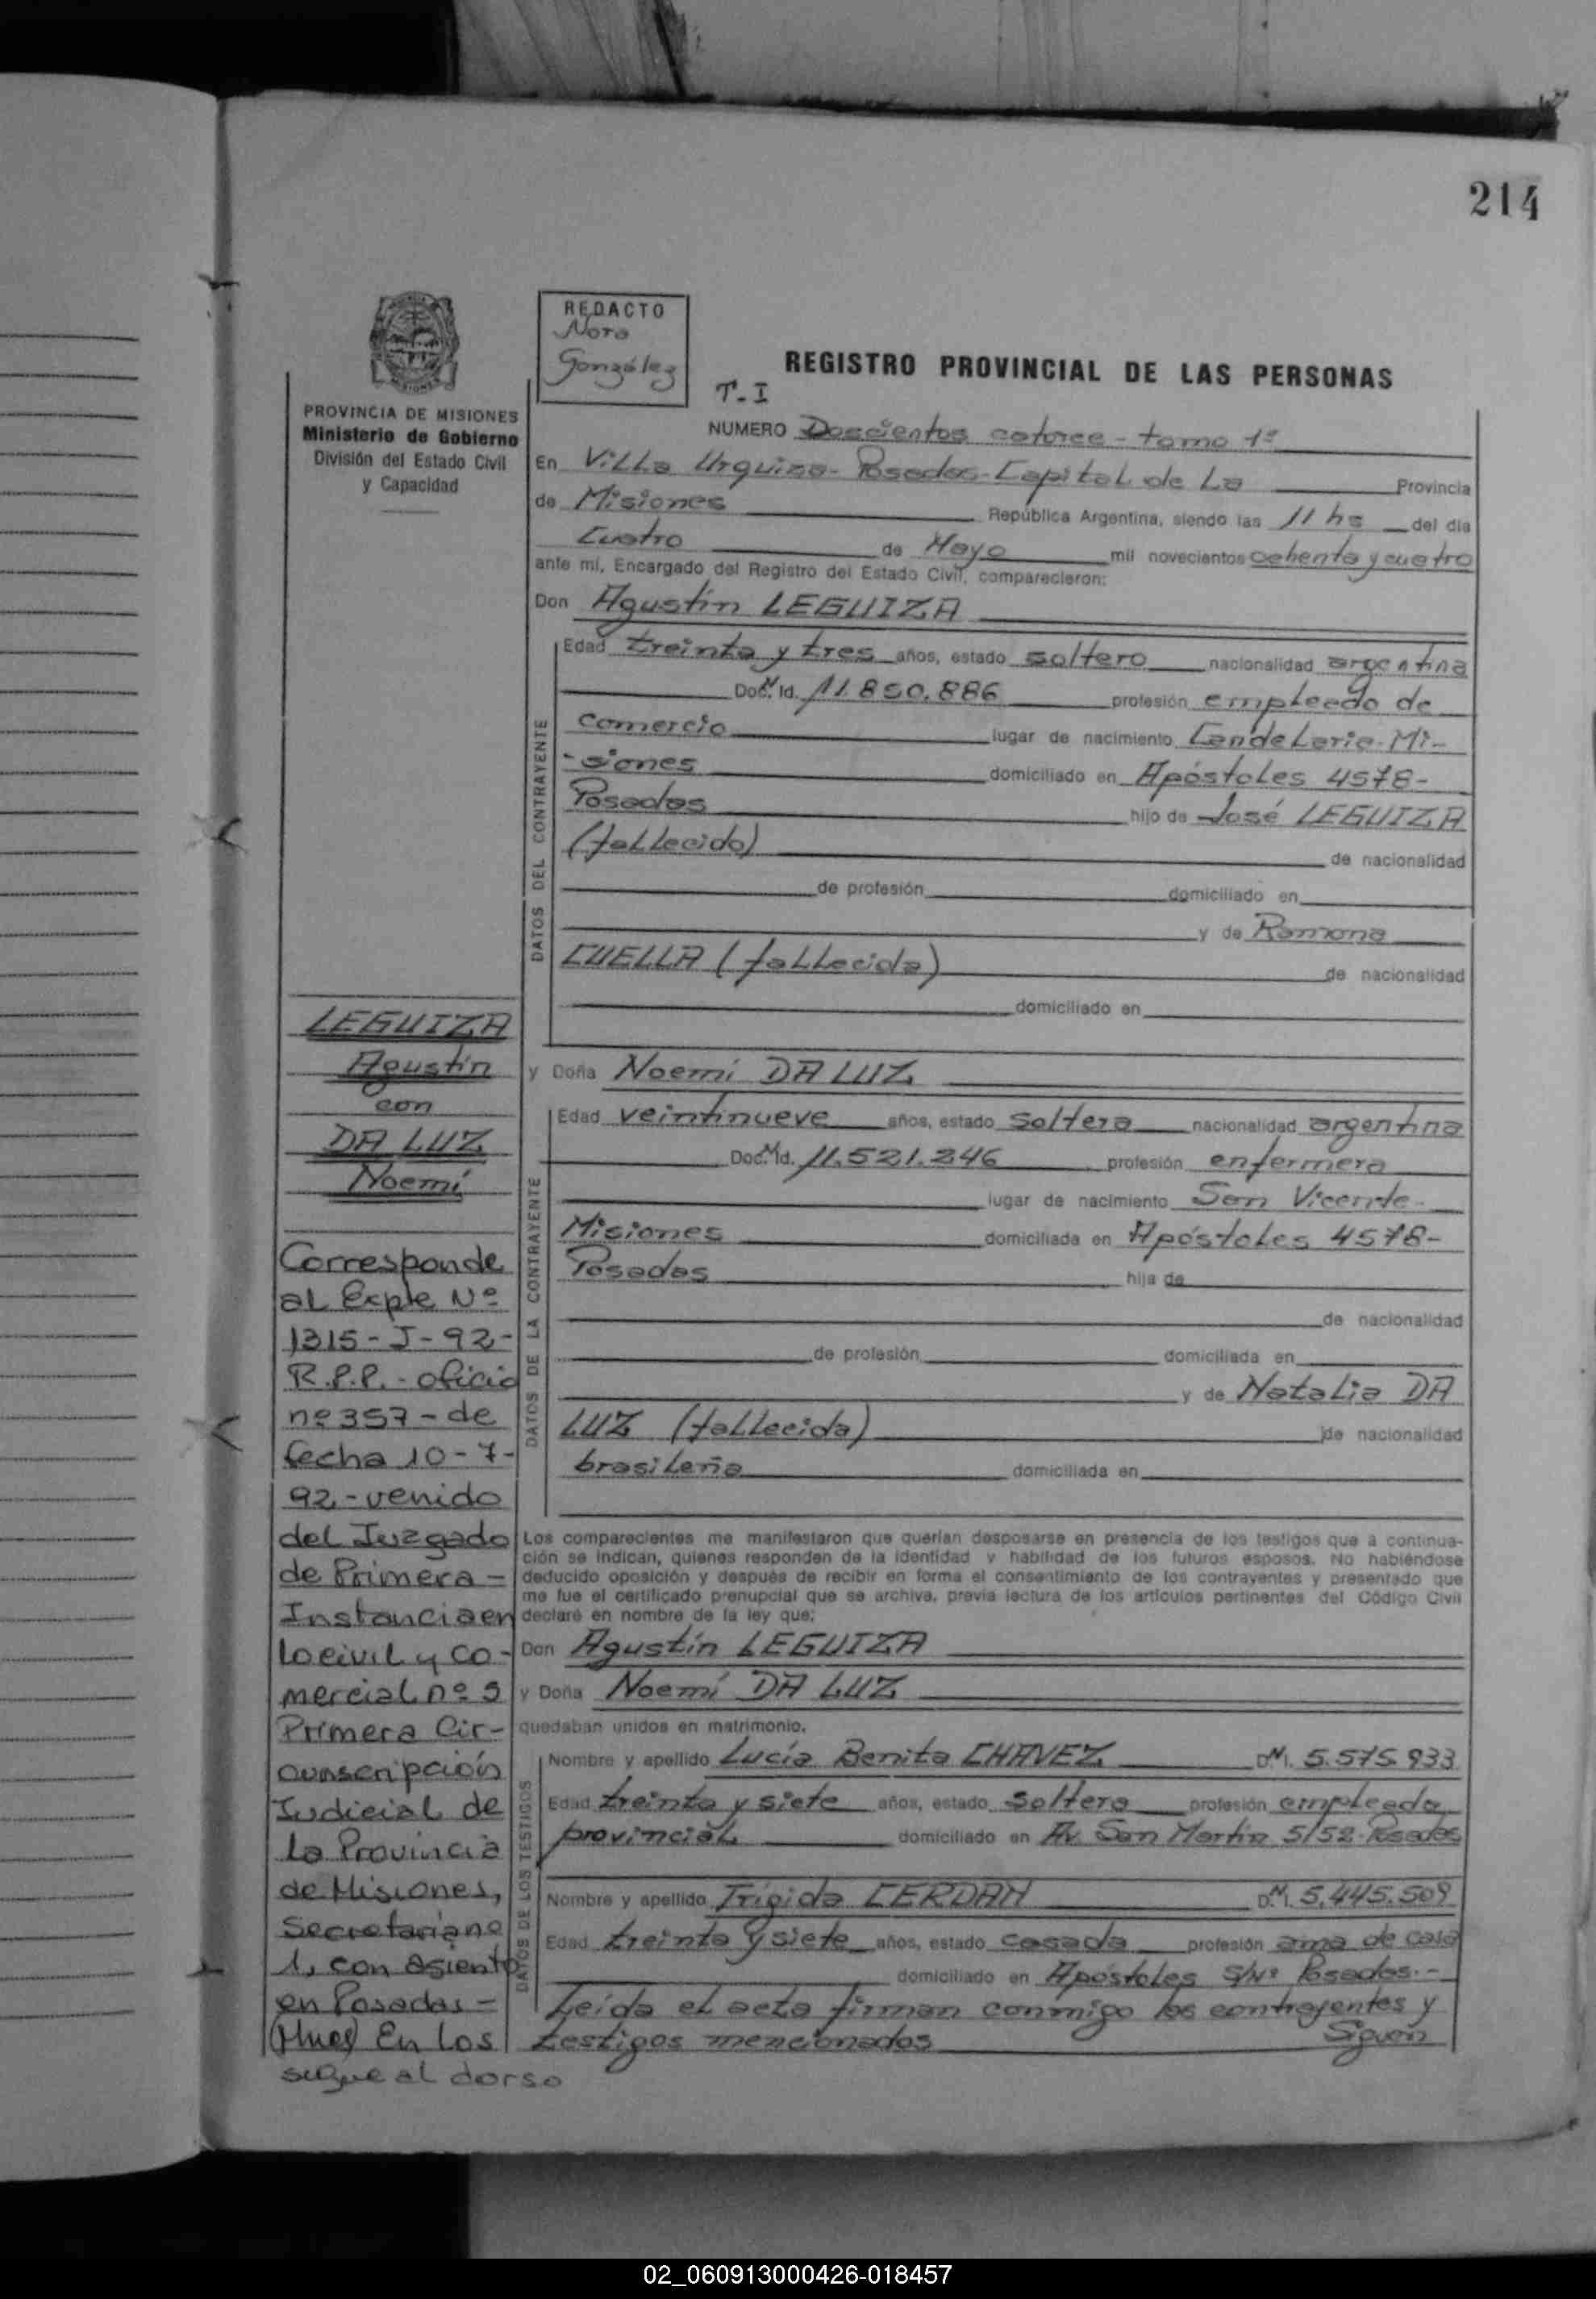 214
REDACTO
Nora
González
REGISTRO PROVINCIAL DE LAS PERSONAS
T-I
PROVINCIA DE MISIONES
Ministerio de Gobierno
División del Estado Civil
y Capacidad
NUMERO Doscientos catorce - tomo 1º
En Villa Urquiza - Posadas - Capital de La Provincia
de Misiones República Argentina, siendo las 11 hs del día
Cuatro de Mayo mil novecientos ochenta y cuatro
ante mí, Encargado del Registro del Estado Civil, comparecieron:
Don Agustín LEGUIZA
DATOS DEL CONTRAYENTE
Edad treinta y tres años, estado soltero nacionalidad argentina
Doc. Id. M 11.850.886 profesión empleado de
comercio lugar de nacimiento Candelaria - Mi-
-siones domiciliado en Apóstoles 4578-
Posadas hijo de José LEGUIZA
(fallecido) de nacionalidad
de profesión domiciliado en
y de Ramona
CUELLA (fallecida) de nacionalidad
domiciliado en
y Doña Noemí DA LUZ
DATOS DE LA CONTRAYENTE
Edad veintinueve años, estado soltera nacionalidad argentina
Doc. Id. M 11.521.246 profesión enfermera
lugar de nacimiento San Vicente-
Misiones domiciliada en Apóstoles 4578-
Posadas hija de
de nacionalidad
de profesión domiciliada en
y de Natalia DA
LUZ (fallecida) de nacionalidad
brasileña domiciliada en
Los comparecientes me manifestaron que querían desposarse en presencia de los testigos que a continua-
ción se indican, quienes responden de la identidad y habilidad de los futuros esposos. No habiéndose
deducido oposición y después de recibir en forma el consentimiento de los contrayentes y presentado que
me fue el certificado prenupcial que se archiva, previa lectura de los artículos pertinentes del Código Civil
declaré en nombre de la ley que:
Don Agustín LEGUIZA
y Doña Noemí DA LUZ
quedaban unidos en matrimonio.
DATOS DE LOS TESTIGOS
Nombre y apellido Lucía Benita CHAVEZ D.M.I. 5.575.933
Edad treinta y siete años, estado soltera profesión empleada
provincial domiciliado en Av. San Martín 5152-Posadas
Nombre y apellido Frígida CERDAN D.M.I. 5.445.509
Edad treinta y siete años, estado casada profesión ama de casa
domiciliado en Apóstoles S/Nº Posadas.-
Leída el acta firman conmigo los contrayentes y
testigos mencionados Siguen
LEGUIZA
Agustín
con
DA LUZ
Noemí
Corresponde
al Expte Nº
1315-J-92-
R.P.P. - oficio
nº 357 - de
fecha 10-7-
92 - venido
del Juzgado
de Primera -
Instancia en
lo civil y co-
mercial nº 5
Primera Cir-
cunscripción
Judicial de
la Provincia
de Misiones,
Secretaría nº
1, con asiento
en Posadas -
En Los
sigue al dorso
02_060913000426-018457